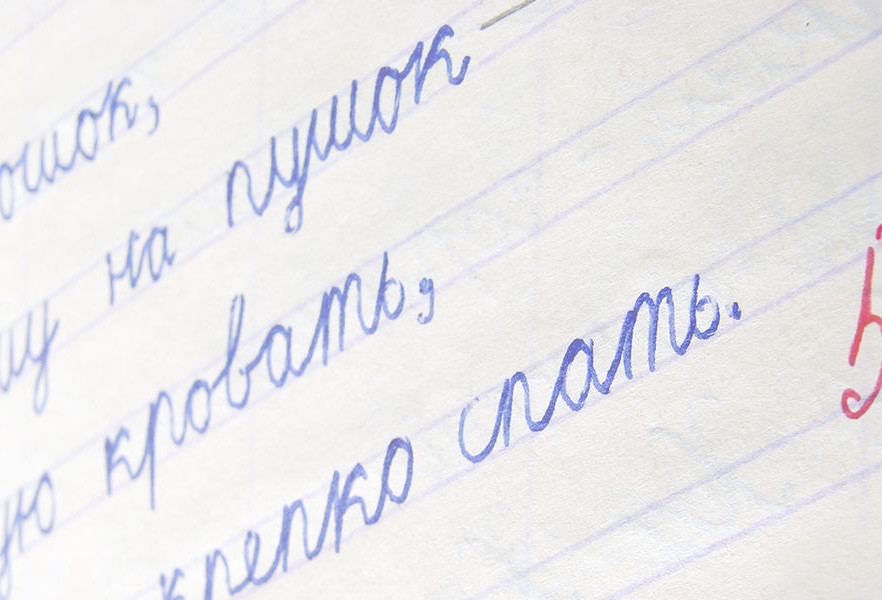 ошок,
шу на пушок
ую кровать,
крепко спать.
5